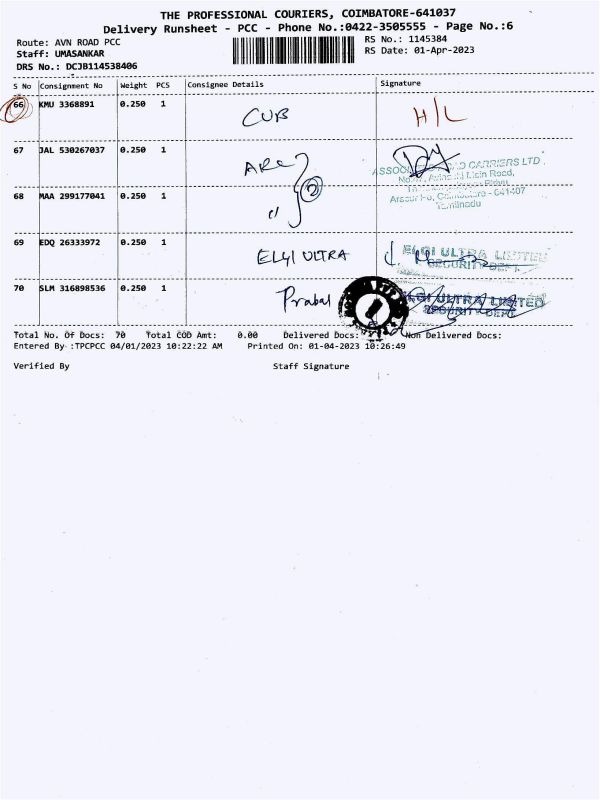 THE PROFESSIONAL COURIERS, COIMBATORE-641037
Delivery Runsheet - PCC - Phone No.:0422-3505555 - Page No.:6
Route: AVN ROAD PCC RS No.: 1145384
Staff: UMASANKAR RS Date: 01-Apr-2023
DRS No.: DCJB114538406
S No Consignment No Weight PCS Consignee Details Signature
66 KMU 3368891 0.250 1 CUB H/L
67 JAL 530267037 0.250 1 ARC
CARRIERS LTD
Road,
68 MAA 299177041 0.250 1 〃 2
641407
Tamilnadu
69 EDQ 26333972 0.250 1 ELGI ULTRA ELGI ULTRA LIMITED
SECURITY DEPT.
70 SLM 316898536 0.250 1 Prabal ELGI ULTRA LIMITED
SECURITY DEPT.
Total No. Of Docs: 70 Total COD Amt: 0.00 Delivered Docs: Non Delivered Docs:
Entered By :TPCPCC 04/01/2023 10:22:22 AM Printed On: 01-04-2023 10:26:49
Verified By Staff Signature